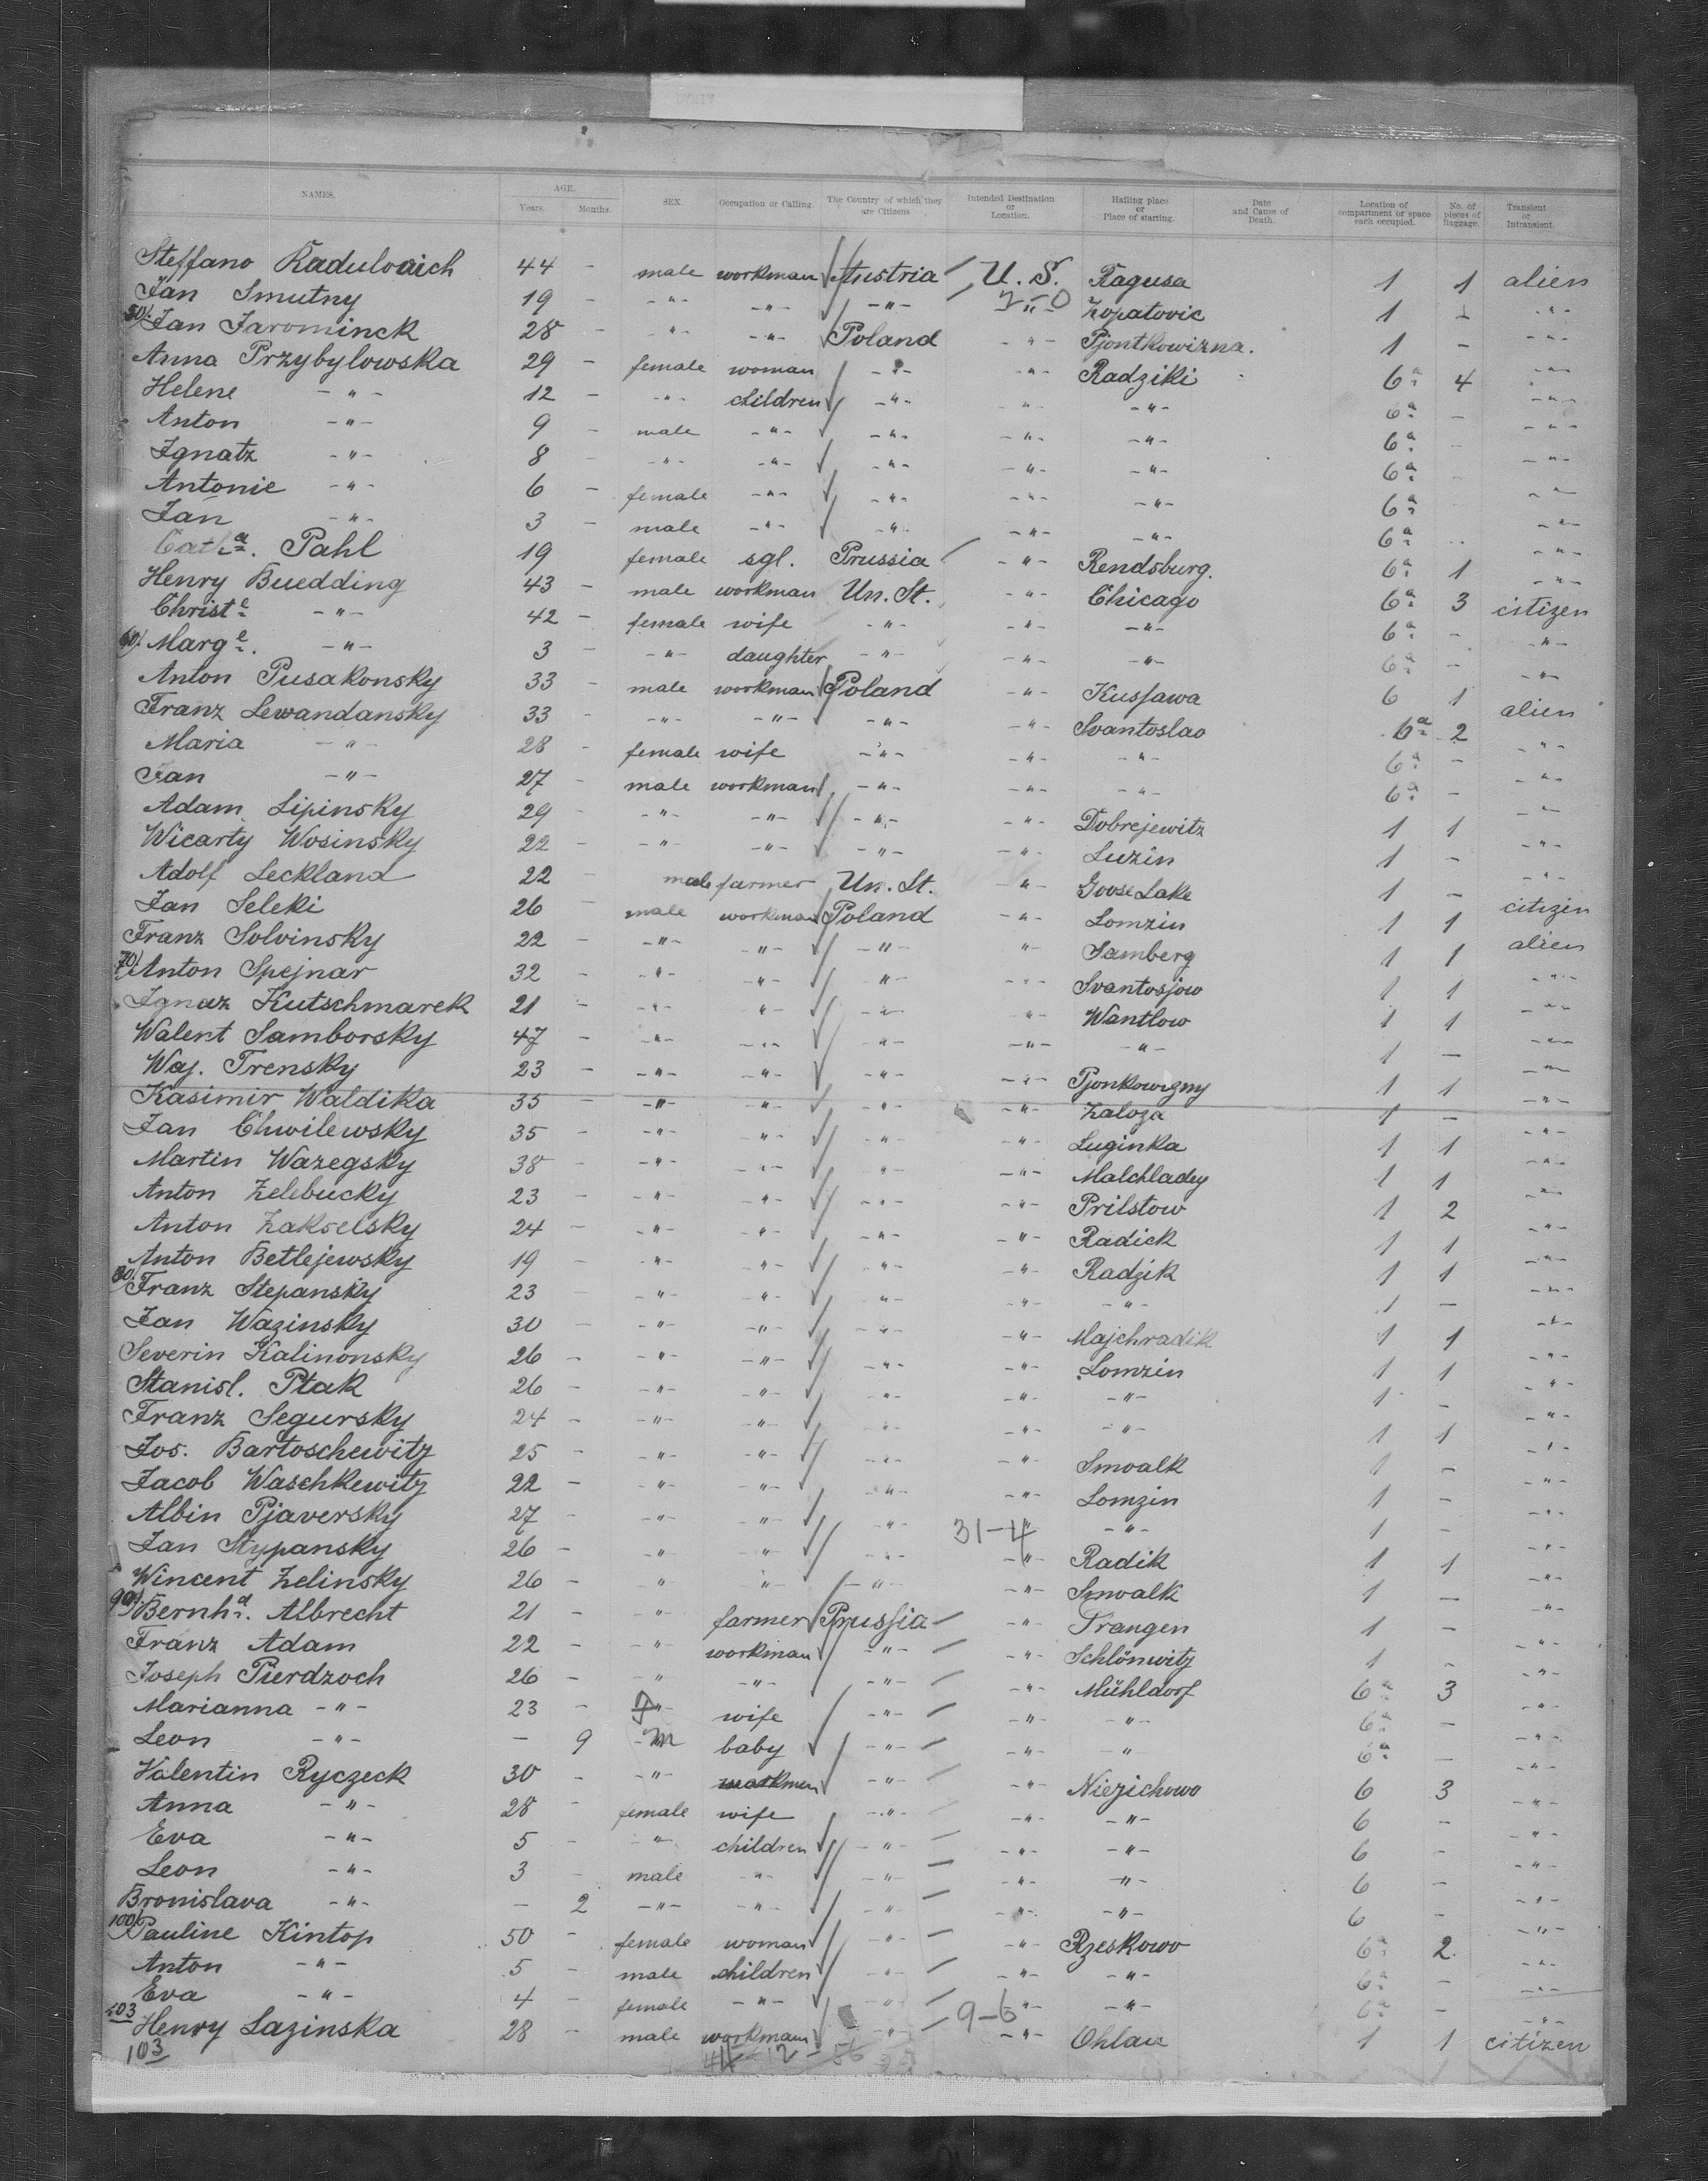 NAMES. AGE. Years. Months. SEX. Occupation or Calling. The Country of which they are Citizens Intended Destination or Location. Hailing place or Place of starting. Date and Cause of Death. Location of compartment or space each occupied. No. of pieces of Baggage. Transient or Intransient.
Steffano Radulovich 44 - male workman Austria U. S. Ragusa 1 1 alien
Jan Smutny 19 - -"- -"- -"- -"- Zopatovic 1 1 -"-
50/. Jan Jarominck 28 - -"- -"- Poland -"- Pjontkowizna. 1 - -"-
Anna Przybylowska 29 - female woman -"- -"- Radziki 6a 4 -"-
Helene -"- 12 - -"- children -"- -"- -"- 6a - -"-
Anton -"- 9 - male -"- -"- -"- -"- 6a - -"-
Ignatz -"- 8 - -"- -"- -"- -"- -"- 6a - -"-
Antonie -"- 6 - female -"- -"- -"- -"- 6a - -"-
Jan -"- 3 - male -"- -"- -"- -"- 6a - -"-
Catha. Pahl 19 female sgl. Prussia -"- Rendsburg. 6a 1 -"-
Henry Buedding 43 - male workman Un. St. -"- Chicago 6a 3 citizen
Christe -"- 42 - female wife -"- -"- -"- 6a - -"-
60/. Marge. -"- 3 - -"- daughter -"- -"- -"- 6a - -"-
Anton Pusakonsky 33 - male workman Poland -"- Kussawa 6 1 alien
Franz Lewandansky 33 - -"- -"- -"- -"- Svantoslao 6a 2 -"-
Maria -"- 28 - female wife -"- -"- -"- 6a - -"-
Jan -"- 27 - male workman -"- -"- -"- 6a - -"-
Adam Lipinsky 29 - -"- -"- -"- -"- Dobrejewitz 1 1 -"-
Wicarty Wosinsky 22 - -"- -"- -"- -"- Luzin 1 - -"-
Adolf Leckland 22 - male farmer Un. St. -"- Goose Lake 1 - citizen
Jan Seleki 26 - male workman Poland -"- Lomzin 1 1 alien
Franz Solvinsky 22 - -"- -"- -"- -"- Samberg 1 1 -"-
70/. Anton Spejnar 32 - -"- -"- -"- -"- Svantosjow 1 1 -"-
Ignaz Kutschmarek 21 - -"- -"- -"- -"- Wantlow 1 1 -"-
Walent Samborsky 47 - -"- -"- -"- -"- -"- 1 - -"-
Waj. Trensky 23 - -"- -"- -"- -"- Pjonkowizny 1 1 -"-
Kasimir Waldika 35 - -"- -"- -"- -"- Zaloza 1 - -"-
Jan Chwilewsky 35 - -"- -"- -"- -"- Luginka 1 1 -"-
Martin Wazegsky 38 - -"- -"- -"- -"- Malchladey 1 1 -"-
Anton Zelebucky 23 - -"- -"- -"- -"- Prilstow 1 2 -"-
Anton Zakselsky 24 - -"- -"- -"- -"- Radick 1 1 -"-
Anton Betlejewsky 19 - -"- -"- -"- -"- Radzik 1 1 -"-
80/. Franz Stepansky 23 -"- -"- -"- -"- -"- 1 - -"-
Jan Wazinsky 30 - -"- -"- -"- -"- Majchradik 1 1 -"-
Severin Kalinonsky 26 - -"- -"- -"- -"- Lomzin 1 1 -"-
Stanisl. Ptak 26 - -"- -"- -"- -"- -"- 1 - -"-
Franz Segursky 24 - -"- -"- -"- -"- -"- 1 1 -"-
Jos. Bartoschewitz 25 - -"- -"- -"- -"- Smoalk 1 - -"-
Jacob Waschkewitz 22 - -"- -"- -"- -"- Lomzin 1 - -"-
Albin Pjaversky 27 - -"- -"- -"- 31-4 -"- 1 - -"-
Jan Stypansky 26 - -"- -"- -"- -"- Radik 1 1 -"-
Wincent Zelinsky 26 - -"- -"- -"- -"- Smoalk 1 - -"-
90/. Bernhd. Albrecht 21 - -"- farmer Prussia -"- Prangen 1 - -"-
Franz Adam 22 - -"- workman -"- -"- Schlönwitz 1 - -"-
Joseph Pierdzoch 26 - -"- -"- -"- -"- Mühldorf 6a 3 -"-
Marianna -"- 23 - f wife -"- -"- -"- 6a - -"-
Leon -"- - 9 m baby -"- -"- -"- 6a - -"-
Valentin Ryczeck 30 - -"- workman -"- -"- Niezichowo 6 3 -"-
Anna -"- 28 - female wife -"- -"- -"- 6 - -"-
Eva -"- 5 - -"- children -"- -"- -"- 6 - -"-
Leon -"- 3 - male -"- -"- -"- -"- 6 - -"-
Bronislava -"- - 2 -"- -"- -"- -"- -"- 6 - -"-
100/. Pauline Kintop 50 - female woman -"- -"- Rzeskowo 6a 2 -"-
Anton -"- 5 - male children -"- -"- -"- 6a - -"-
Eva -"- 4 - female -"- -"- 9-6 -"- -"- 6a - -"-
103 Henry Lazinska 28 - male workman -"- -"- Ohlau 1 1 citizen
103